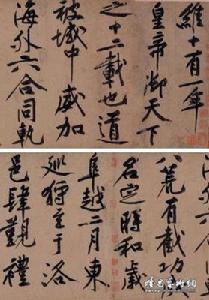 維十有一年
皇帝御天下
之十二載也道
被域中威加
海外六合同軌
八荒有截功成
名定時和歲
阜越二月東
巡狩至于洛
邑肆覲禮